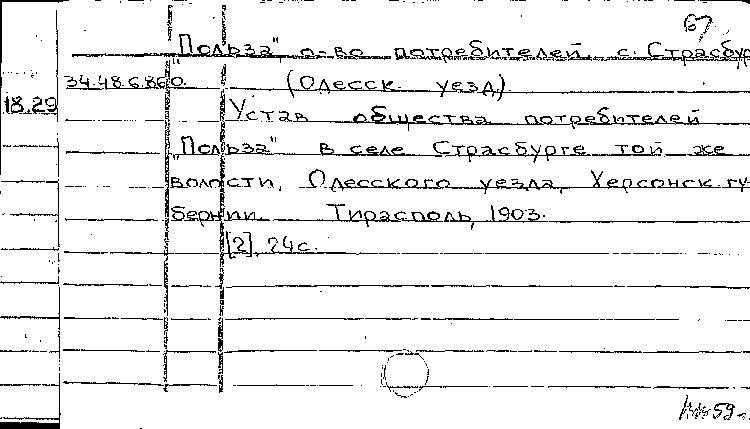 67
"Польза", о-во потребителей, с. Страсбур
34.48.6.860. (Одесск. уезд).
18.29 Устав общества потребителей
"Польза" в селе Страсбурге той же
волости, Одесского уезда, Херсонск. гу
бернии. Тирасполь, 1903.
[2], 24 с.
59